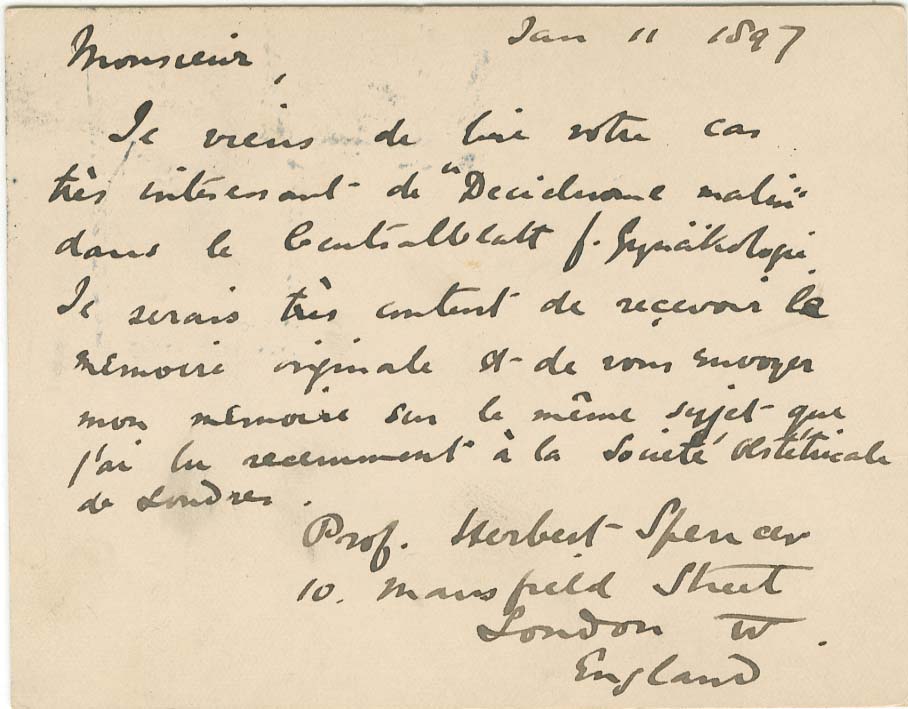 Jan 11 1897
Monsieur,
Je viens de lire votre cas
très intéressant de "Deciduome malin"
dans le Centralblatt f. Gynäkologie.
Je serais très content de reçevoir le
mémoire originale et de vous envoyer
mon mémoire sur le même sujet que
j'ai lu recemment à la Societé Obstétricale
de Londres.
Prof. Herbert Spencer
10. Mansfield Street
London W.
England